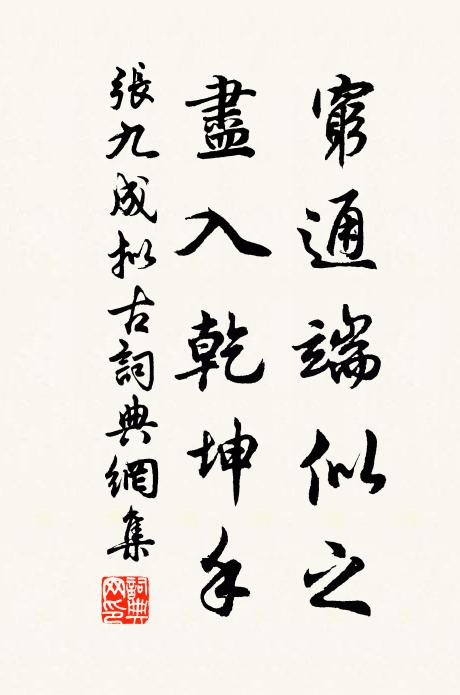 窮通端似之
盡入乾坤手
張九成拟古詞典網集
詞典網印